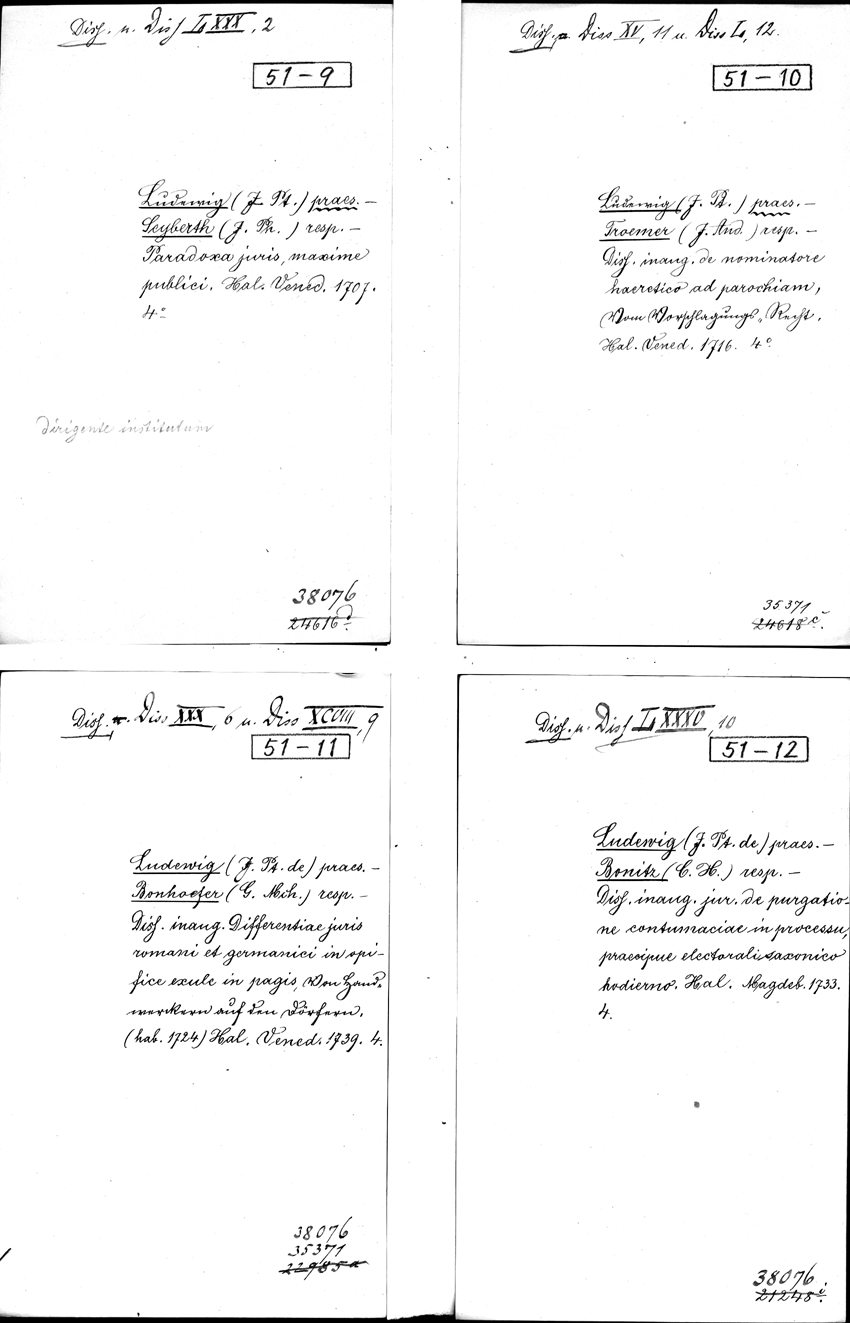 Diss. u. Diss LXXX, 2
51-9
Ludewig (J. Pt.) praes. —
Seyberth (J. Ph.) resp. —
Paradoxa juris, maxime
publici. Hal. Vened. 1707.
4°
dirigente institutum
38076
24616d.
Diss. u. Diss XV, 11 u. Diss L, 12.
51-10
Ludewig (J. Pt.) praes. —
Troemer (J. And.) resp. —
Diss. inaug. de nominatore
haeretico ad parochiam,
Vom Vorschlagungs-Recht.
Hal. Vened. 1716. 4°
35371
24618c.
Diss. u. Diss XXX, 6 u. Diss XCVIII, 9
51-11
Ludewig (J. Pt. de) praes. —
Bonhoefer (G. Mch.) resp. —
Diss. inaug. Differentiae juris
romani et germanici in opi-
fice exule in pagis, Von Hand-
werckern auf den Dörfern.
(hab. 1724) Hal. Vened. 1739. 4.
38076
35371
22985a
Diss. u. Diss LXXXV, 10
51-12
Ludewig (J. Pt. de) praes. —
Bonitz (C. H.) resp. —
Diss. inaug. jur. de purgatio-
ne contumaciae in processu,
praecipue electorali saxonico
hodierno. Hal. Magdeb. 1733.
4.
38076
21248i.